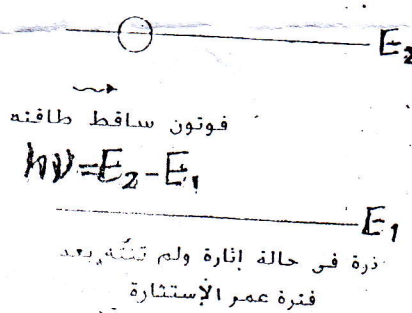 E₂
فوتون ساقط طاقته
hν=E₂-E₁
E₁
ذرة فى حالة إثارة ولم تنته بعد
فترة عمر الإستثارة